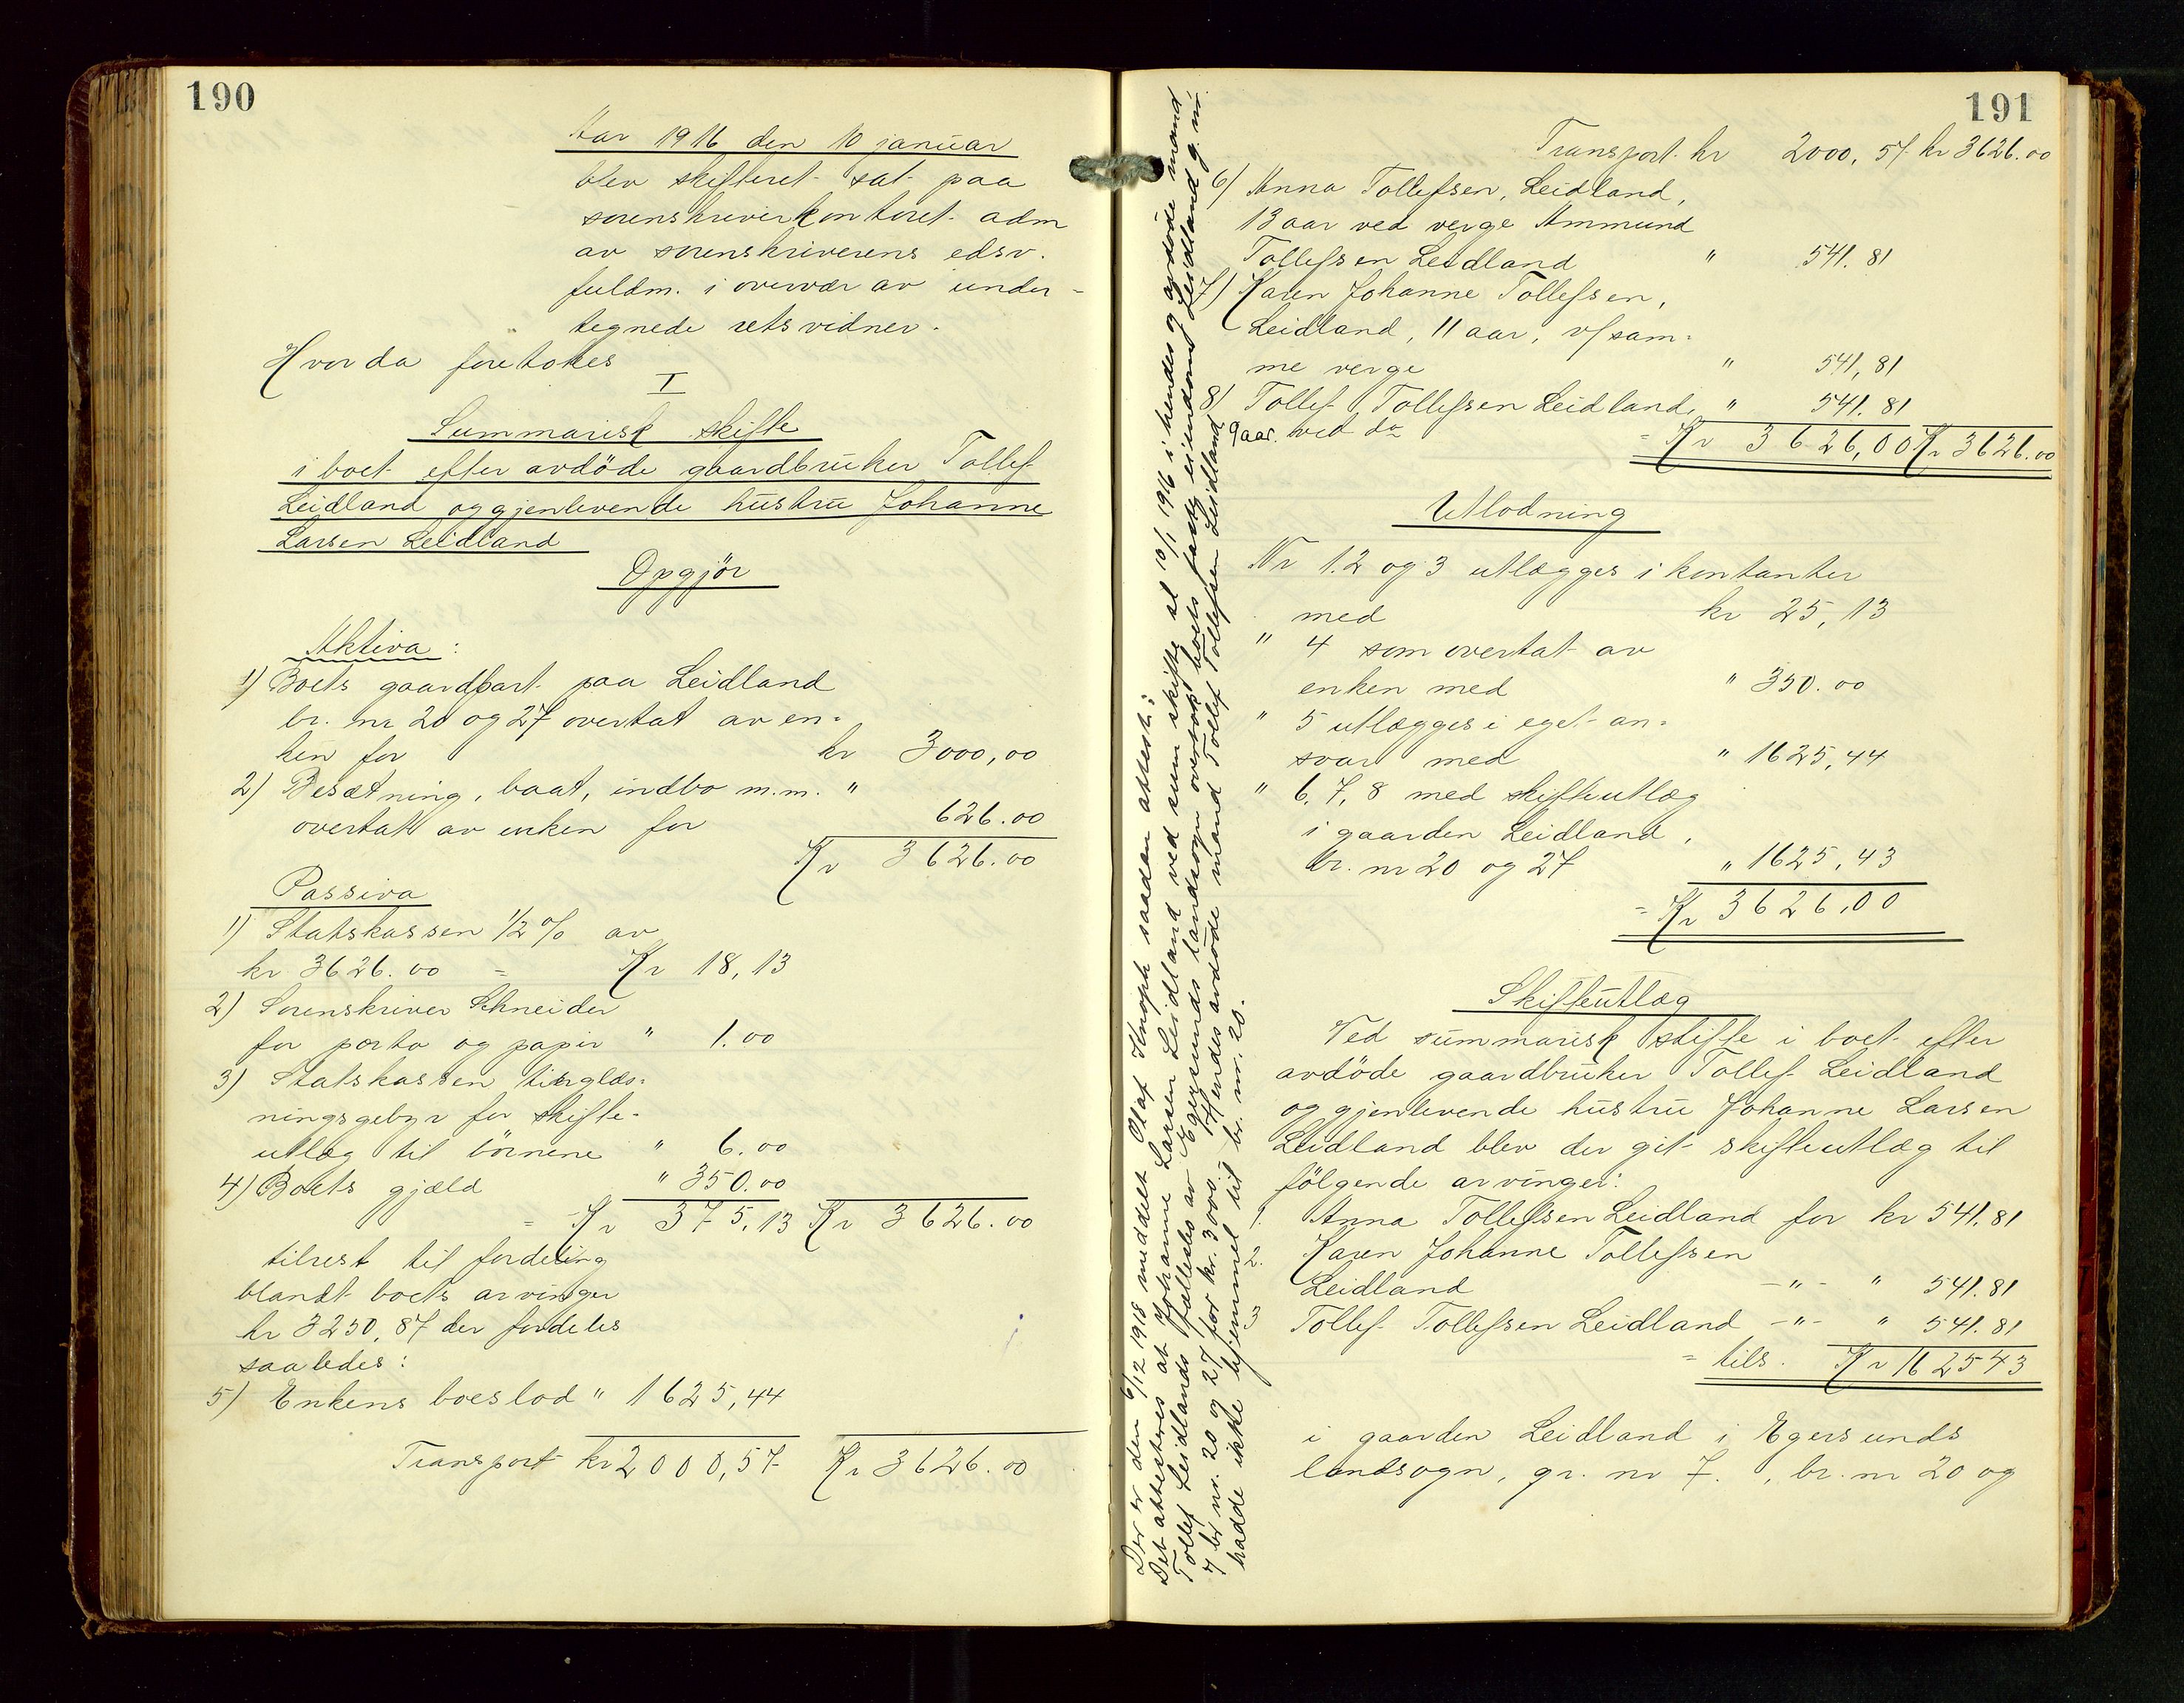 190
Aar 1916 den 10 januar
blev skifteret sat paa
sorenskriverkontoret adm
av sorenskriverens edsv.
fuldm. i overvær av under-
tegnede retsvidner.
Hvorda foretokes
I
Summarisk skifte
i boet efter avdöde gaardbruker Tollef
Leidland og gjenlevende hustru Johanne
Larsen Leidland
Opgjör
Aktiva:
1) Boets gaardpart paa Leidland
br. nr 20 og 27 overtat av en=
ken for kr 3000,00
2) Besætning, baat, indbo m.m. "
overtat av enken for 626.00
Kr 3626.00
Passiva
1) Statskassen ½ % av
kr 3626.00 = Kr 18,13
2) Sorenskriver Schneider
for porto og papir " 1.00
3) Statskassen tinglæs=
ningsgebyr for skifte=
utlæg til börnene " 6.00
4) Boets gjæld " 350.00
= Kr 375,13 Kr 3626.00
tilrest til fordeling
blandt boets arvinger
kr 3250,87 der fordeles
saaledes:
5) Enkens boeslod " 1625,44
Transport kr 2000,57 Kr 3626.00
191
Transport kr 2000,57 kr 3626.00
6) Anna Tollefsen, Leidland,
13 aar ved verge Ammund
Tollefsen Leidland " 541.81
7) Karen Johanne Tollefsen,
Leidland, 11 aar, v/ sam=
me verge " 541,81
8) Tollef Tollefsen Leidland, " 541.81
9 aar. ved do
= Kr 3626,00 Kr 3626.00
Utlodning
Nr 1.2 og 3 utlægges i kontanter
med kr 25,13
" 4 som overtat av
enken med " 350.00
" 5 utlægges i eget an=
svar med " 1625,44
" 6, 7, 8 med skifteutlæg
i gaarden Leidland,
br. nr 20 og 27 " 1625,43
= Kr 3626,00
Skifteutlæg
Ved summarisk skifte i boet efter
avdöde gaardbruker Tollef Leidland
og gjenlevende hustru Johanne Larsen
Leidland blev der git skifteutlæg til
fölgende arvinger:
1. Anna Tollefsen Leidland for kr 541.81
2. Karen Johanne Tollefsen
Leidland -"- " 541.81
3 Tollef Tollefsen Leidland -"- " 541.81
= tils. Kr 162543
i gaarden Leidland i Egersunds
landsogn, gr. nr 7. , br. nr 20 og
Der er den 6/12 1918 meddelt Olaf Knoph saadan attest:
Det attesteres at Johanne Larsen Leidland ved sum skifte sl 10/1 1916 i hendes og avdöde mand
Tollef Leidlands fællesbo av Egersunds landsogn overtok boets faste eiendom Leidland g. nr.
7 br nr. 20 og 27 for kr. 3000.- Hendes avdöde mand Tollef Tollefsen Leidland
hadde ikke hjemmel til br. nr. 20.